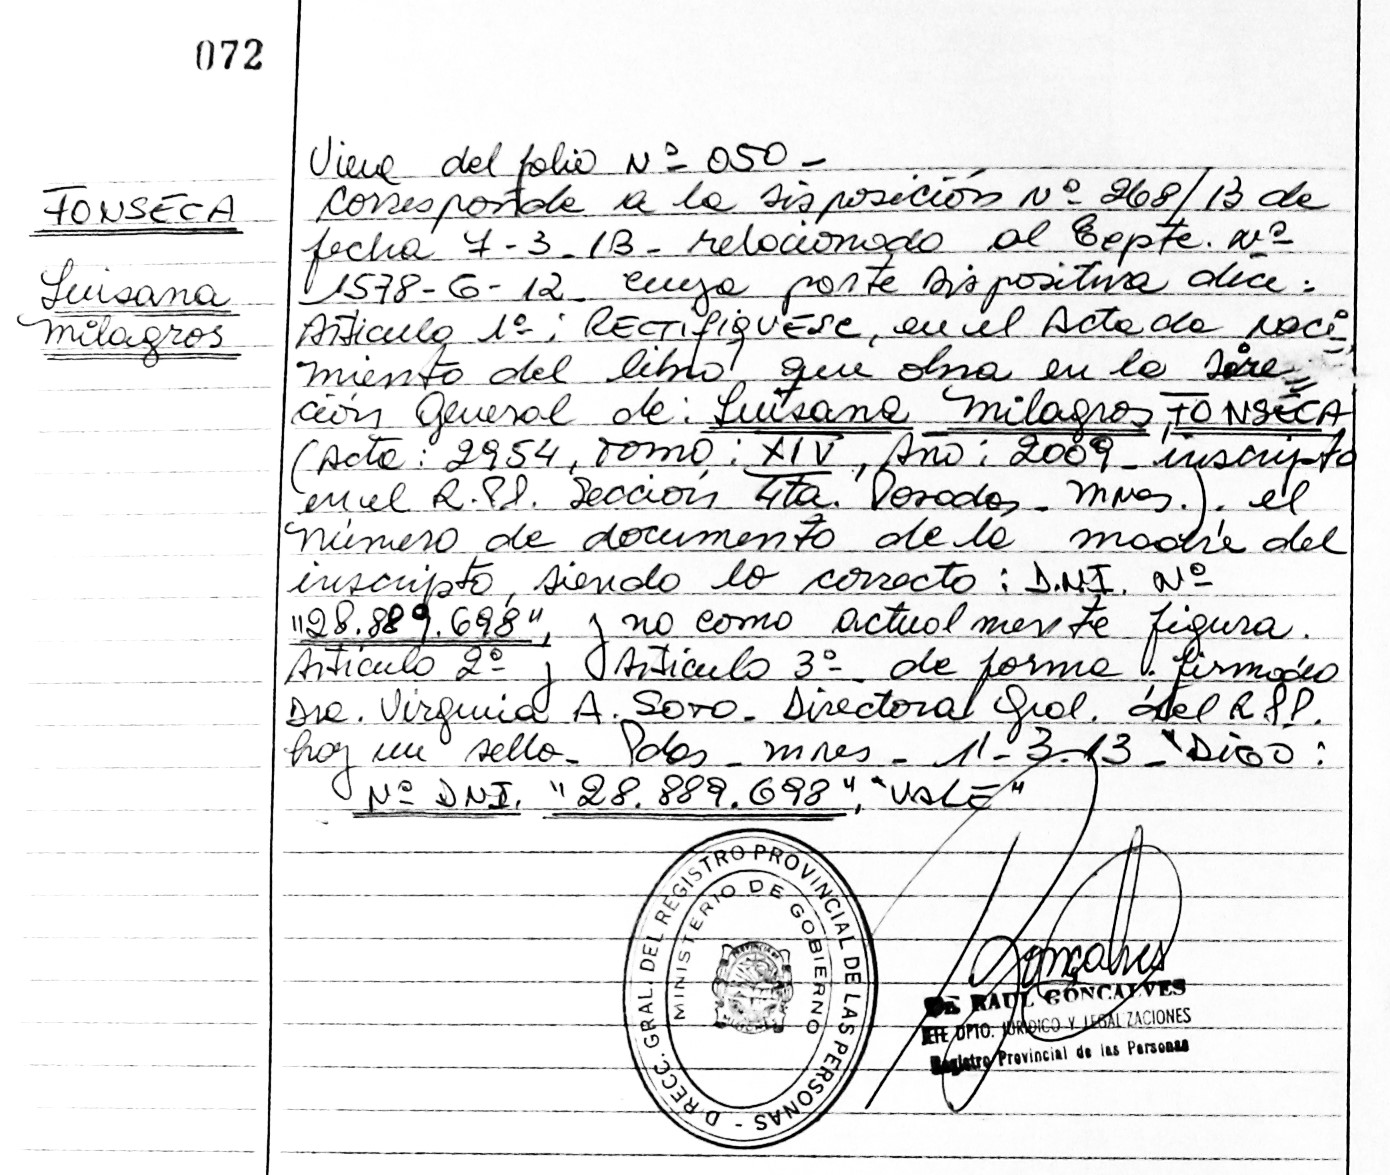 072
FONSECA
Luisana
Milagros
Viene del folio Nº 050 -
Corresponde a la disposición Nº 268/13 de
fecha 7-3-13- relacionado al Expte. Nº
1578-G-12- cuya parte dispositiva dice:
Artículo 1º: RECTIFIQUESE, en el Acta de naci=
miento del libro que obra en la Dire=
ción General de: Luisana Milagros FONSECA
(Acta: 2954, Tomo: XIV, Año: 2009- inscripto
en el R.P.P. Sección 4ta. Posadas- Mnes.). el
número de documento de la madre del
inscripto, siendo lo correcto: D.N.I. Nº
"28.889.698", y no como actualmente figura.
Artículo 2º y Artículo 3º- de forma. firmado
Dra. Virginia A. Soto- Directora Gral. del R.P.P.
hay un sello- Pdas- Mnes- 11-3-13- "DIGO:
Nº DNI. "28.889.698", "VALE"
DIRECC. GRAL. DEL REGISTRO PROVINCIAL DE LAS PERSONAS -
MINISTERIO DE GOBIERNO
Goncalves
RAUL GONCALVES
JEFE DPTO. JURIDICO Y LEGALIZACIONES
Registro Provincial de las Personas